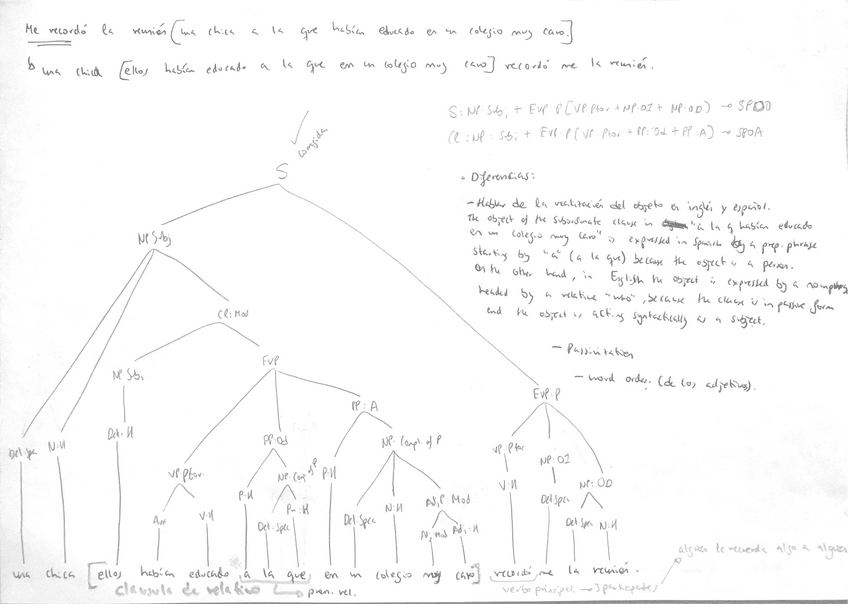 Me recordó la reunión [una chica a la que habían educado en un colegio muy caro.]
b una chica [ellos habían educado a la que en un colegio muy caro] recordó me la reunión.
S: NP: Subj + EVP: P (VP: Ptor + NP: OI + NP: OD) →
Cl: NP: Subj + EVP: P (VP: Ptor + PP: Od + PP: A) → SPOA
corregida
S
• Diferencias:
- Hablar de la realización del objeto en inglés y español.
The object of the subordinate clause in "a la q habían educado
en un colegio muy caro" is expressed in Spanish by a prep. phrase
starting by "a" (a la que) because the object is a person.
On the other hand, in English the object is expressed by a
headed by a relative "who", because the clause is in passive form
and the object is acting syntactically as a subject.
- Passivitation
- word order. (de los adjetivos).
NP: Subj
Cl: Mod
NP: Subj EVP EVP: P
PP: A
Det: Spec N: H Det: H PP: Od NP: Compl. of P VP: Ptor NP: OI
VP: Ptor NP: Comp of P P: H NP: OD
Aux V: H P: H Det: Spec Pn: H Det: Spec N: H Adj P: Mod V: H Det: Spec
Adj: H Det: Spec N: H
una chica [ellos habían educado a la que en un colegio muy caro] recordó me la reunión.
clausula de relativo → pron. rel. verbo principal → 3 participantes
alguien le recuerda algo a alguien